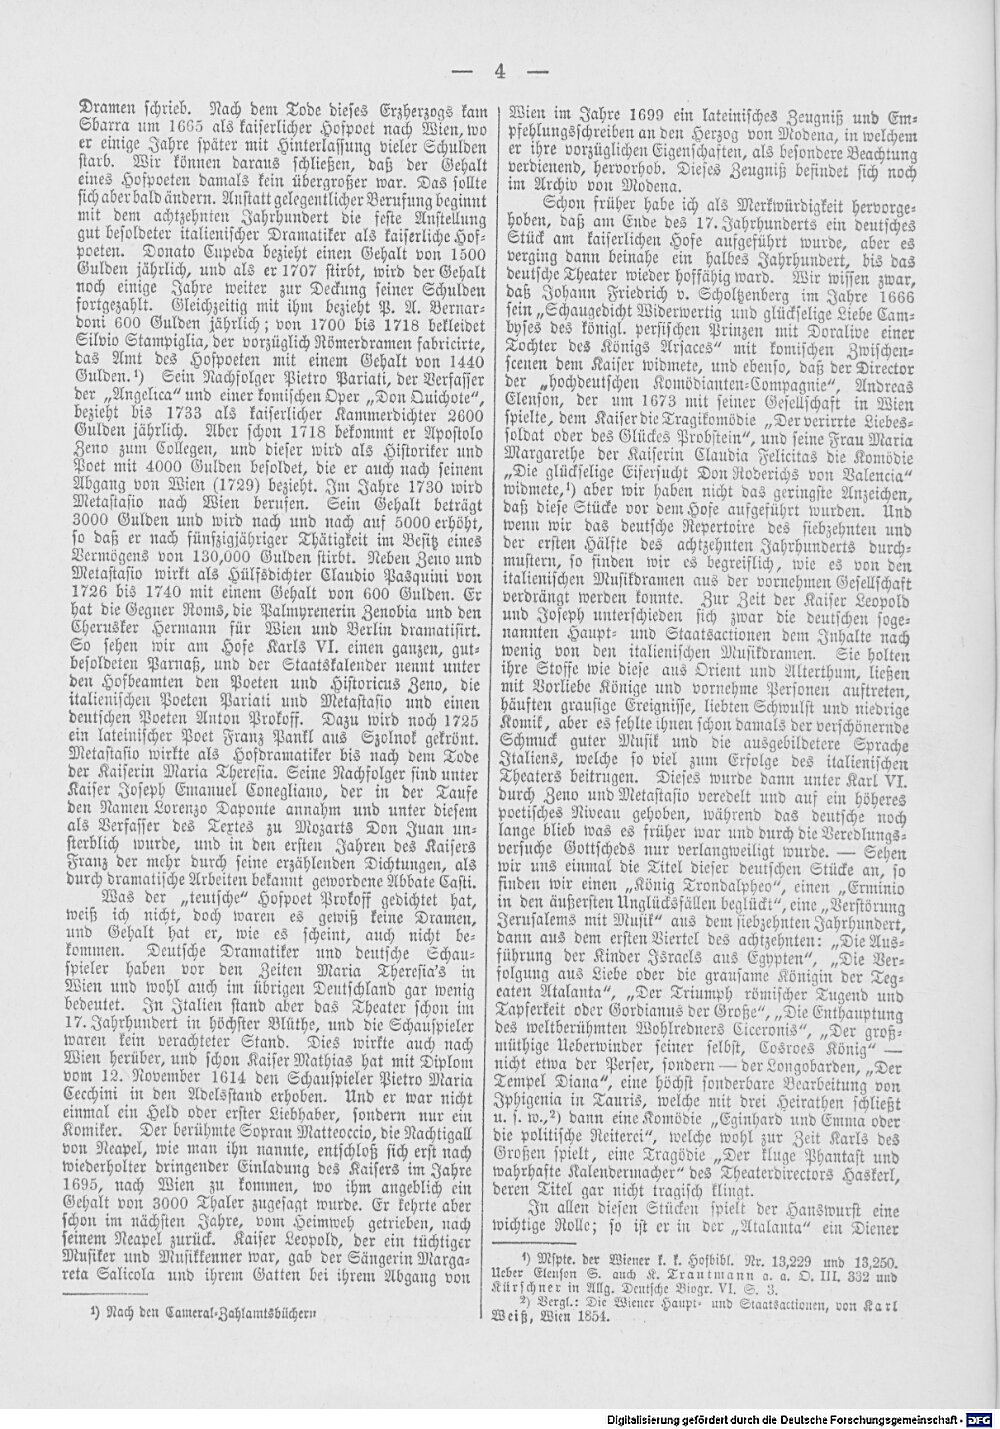 — 4 —
Dramen schrieb. Nach dem Tode dieses Erzherzogs kam
Sbarra um 1665 als kaiserlicher Hofpoet nach Wien, wo
er einige Jahre später mit Hinterlassung vieler Schulden
starb. Wir können daraus schließen, daß der Gehalt
eines Hofpoeten damals kein übergroßer war. Das sollte
sich aber bald ändern. Anstatt gelegentlicher Berufung beginnt
mit dem achtzehnten Jahrhundert die feste Anstellung
gut besoldeter italienischer Dramatiker als kaiserliche Hof-
poeten. Donato Cupeda bezieht einen Gehalt von 1500
Gulden jährlich, und als er 1707 stirbt, wird der Gehalt
noch einige Jahre weiter zur Deckung seiner Schulden
fortgezahlt. Gleichzeitig mit ihm bezieht P. A. Bernar-
doni 600 Gulden jährlich; von 1700 bis 1718 bekleidet
Silvio Stampiglia, der vorzüglich Römerdramen fabricirte,
das Amt des Hofpoeten mit einem Gehalt von 1440
Gulden.¹) Sein Nachfolger Pietro Pariati, der Verfasser
der „Angelica“ und einer komischen Oper „Don Quichote“,
bezieht bis 1733 als kaiserlicher Kammerdichter 2600
Gulden jährlich. Aber schon 1718 bekommt er Apostolo
Zeno zum Collegen, und dieser wird als Historiker und
Poet mit 4000 Gulden besoldet, die er auch nach seinem
Abgang von Wien (1729) bezieht. Im Jahre 1730 wird
Metastasio nach Wien berufen. Sein Gehalt beträgt
3000 Gulden und wird nach und nach auf 5000 erhöht,
so daß er nach fünfzigjähriger Thätigkeit im Besitz eines
Vermögens von 130,000 Gulden stirbt. Neben Zeno und
Metastasio wirkt als Hülfsdichter Claudio Pasquini von
1726 bis 1740 mit einem Gehalt von 600 Gulden. Er
hat die Gegner Roms, die Palmyrenerin Zenobia und den
Cherusker Hermann für Wien und Berlin dramatisirt.
So sehen wir am Hofe Karls VI. einen ganzen, gut-
besoldeten Parnaß, und der Staatskalender nennt unter
den Hofbeamten den Poeten und Historicus Zeno, die
italienischen Poeten Pariati und Metastasio und einen
deutschen Poeten Anton Prokoff. Dazu wird noch 1725
ein lateinischer Poet Franz Pankl aus Szolnok gekrönt.
Metastasio wirkte als Hofdramatiker bis nach dem Tode
der Kaiserin Maria Theresia. Seine Nachfolger sind unter
Kaiser Joseph Emanuel Conegliano, der in der Taufe
den Namen Lorenzo Daponte annahm und unter diesem
als Verfasser des Textes zu Mozarts Don Juan un-
sterblich wurde, und in den ersten Jahren des Kaisers
Franz der mehr durch seine erzählenden Dichtungen, als
durch dramatische Arbeiten bekannt gewordene Abbate Casti.
Was der „teutsche“ Hofpoet Prokoff gedichtet hat,
weiß ich nicht, doch waren es gewiß keine Dramen,
und Gehalt hat er, wie es scheint, auch nicht be-
kommen. Deutsche Dramatiker und deutsche Schau-
spieler haben vor den Zeiten Maria Theresia's in
Wien und wohl auch im übrigen Deutschland gar wenig
bedeutet. In Italien stand aber das Theater schon im
17. Jahrhundert in höchster Blüthe, und die Schauspieler
waren kein verachteter Stand. Dies wirkte auch nach
Wien herüber, und schon Kaiser Mathias hat mit Diplom
vom 12. November 1614 den Schauspieler Pietro Maria
Cecchini in den Adelsstand erhoben. Und er war nicht
einmal ein Held oder erster Liebhaber, sondern nur ein
Komiker. Der berühmte Sopran Matteoccio, die Nachtigall
von Neapel, wie man ihn nannte, entschloß sich erst nach
wiederholter dringender Einladung des Kaisers im Jahre
1695, nach Wien zu kommen, wo ihm angeblich ein
Gehalt von 3000 Thaler zugesagt wurde. Er kehrte aber
schon im nächsten Jahre, vom Heimweh getrieben, nach
seinem Neapel zurück. Kaiser Leopold, der ein tüchtiger
Musiker und Musikkenner war, gab der Sängerin Marga-
reta Salicola und ihrem Gatten bei ihrem Abgang von
¹) Nach den Cameral-Zahlamtsbüchern
Wien im Jahre 1699 ein lateinisches Zeugniß und Em-
pfehlungsschreiben an den Herzog von Modena, in welchem
er ihre vorzüglichen Eigenschaften, als besondere Beachtung
verdienend, hervorhob. Dieses Zeugniß befindet sich noch
im Archiv von Modena.
Schon früher habe ich als Merkwürdigkeit hervorge-
hoben, daß am Ende des 17. Jahrhunderts ein deutsches
Stück am kaiserlichen Hofe aufgeführt wurde, aber es
verging dann beinahe ein halbes Jahrhundert, bis das
deutsche Theater wieder hoffähig ward. Wir wissen zwar,
daß Johann Friedrich v. Scholtzenberg im Jahre 1666
sein „Schaugedicht Widerwertig und glückselige Liebe Cam-
byses des königl. persischen Prinzen mit Doralive einer
Tochter des Königs Arsaces“ mit komischen Zwischen-
scenen dem Kaiser widmete, und ebenso, daß der Director
der „hochdeutschen Komödianten-Compagnie“, Andreas
Elenson, der um 1673 mit seiner Gesellschaft in Wien
spielte, dem Kaiser die Tragikomödie „Der verirrte Liebes-
soldat oder des Glückes Probstein“, und seine Frau Maria
Margarethe der Kaiserin Claudia Felicitas die Komödie
„Die glückselige Eifersucht Don Roderichs von Valencia“
widmete,¹) aber wir haben nicht das geringste Anzeichen,
daß diese Stücke vor dem Hofe aufgeführt wurden. Und
wenn wir das deutsche Repertoire des siebzehnten und
der ersten Hälfte des achtzehnten Jahrhunderts durch-
mustern, so finden wir es begreiflich, wie es von den
italienischen Musikdramen aus der vornehmen Gesellschaft
verdrängt werden konnte. Zur Zeit der Kaiser Leopold
und Joseph unterschieden sich zwar die deutschen soge-
nannten Haupt- und Staatsactionen dem Inhalte nach
wenig von den italienischen Musikdramen. Sie holten
ihre Stoffe wie diese aus Orient und Alterthum, ließen
mit Vorliebe Könige und vornehme Personen auftreten,
häuften grausige Ereignisse, liebten Schwulst und niedrige
Komik, aber es fehlte ihnen schon damals der verschönernde
Schmuck guter Musik und die ausgebildetere Sprache
Italiens, welche so viel zum Erfolge des italienischen
Theaters beitrugen. Dieses wurde dann unter Karl VI.
durch Zeno und Metastasio veredelt und auf ein höheres
poetisches Niveau gehoben, während das deutsche noch
lange blieb was es früher war und durch die Veredlungs-
versuche Gottscheds nur verlangweiligt wurde. — Sehen
wir uns einmal die Titel dieser deutschen Stücke an, so
finden wir einen „König Trondalpheo“, einen „Erminio
in den äußersten Unglücksfällen beglückt“, eine „Verstörung
Jerusalems mit Musik“ aus dem siebzehnten Jahrhundert,
dann aus dem ersten Viertel des achtzehnten: „Die Aus-
führung der Kinder Israels aus Egypten“, „Die Ver-
folgung aus Liebe oder die grausame Königin der Teg-
eaten Atalanta“, „Der Triumph römischer Tugend und
Tapferkeit oder Gordianus der Große“, „Die Enthauptung
des weltberühmten Wohlredners Ciceronis“, „Der groß-
müthige Ueberwinder seiner selbst, Cosroes König“ —
nicht etwa der Perser, sondern — der Longobarden, „Der
Tempel Diana“, eine höchst sonderbare Bearbeitung von
Iphigenia in Tauris, welche mit drei Heirathen schließt
u. s. w.,²) dann eine Komödie „Eginhard und Emma oder
die politische Reiterei“, welche wohl zur Zeit Karls des
Großen spielt, eine Tragödie „Der kluge Phantast und
wahrhafte Kalendermacher“ des Theaterdirectors Haskerl,
deren Titel gar nicht tragisch klingt.
In allen diesen Stücken spielt der Hanswurst eine
wichtige Rolle; so ist er in der „Atalanta“ ein Diener
¹) Mspte. der Wiener k. k. Hofbibl. Nr. 13,229 und 13,250.
Ueber Elenson S. auch K. Trautmann a. a. O. III. 332 und
Kürschner in Allg. Deutsche Biogr. VI. S. 3.
²) Vergl.: Die Wiener Haupt- und Staatsactionen, von Karl
Weiß, Wien 1854.
Digitalisierung gefördert durch die Deutsche Forschungsgemeinschaft - DFG